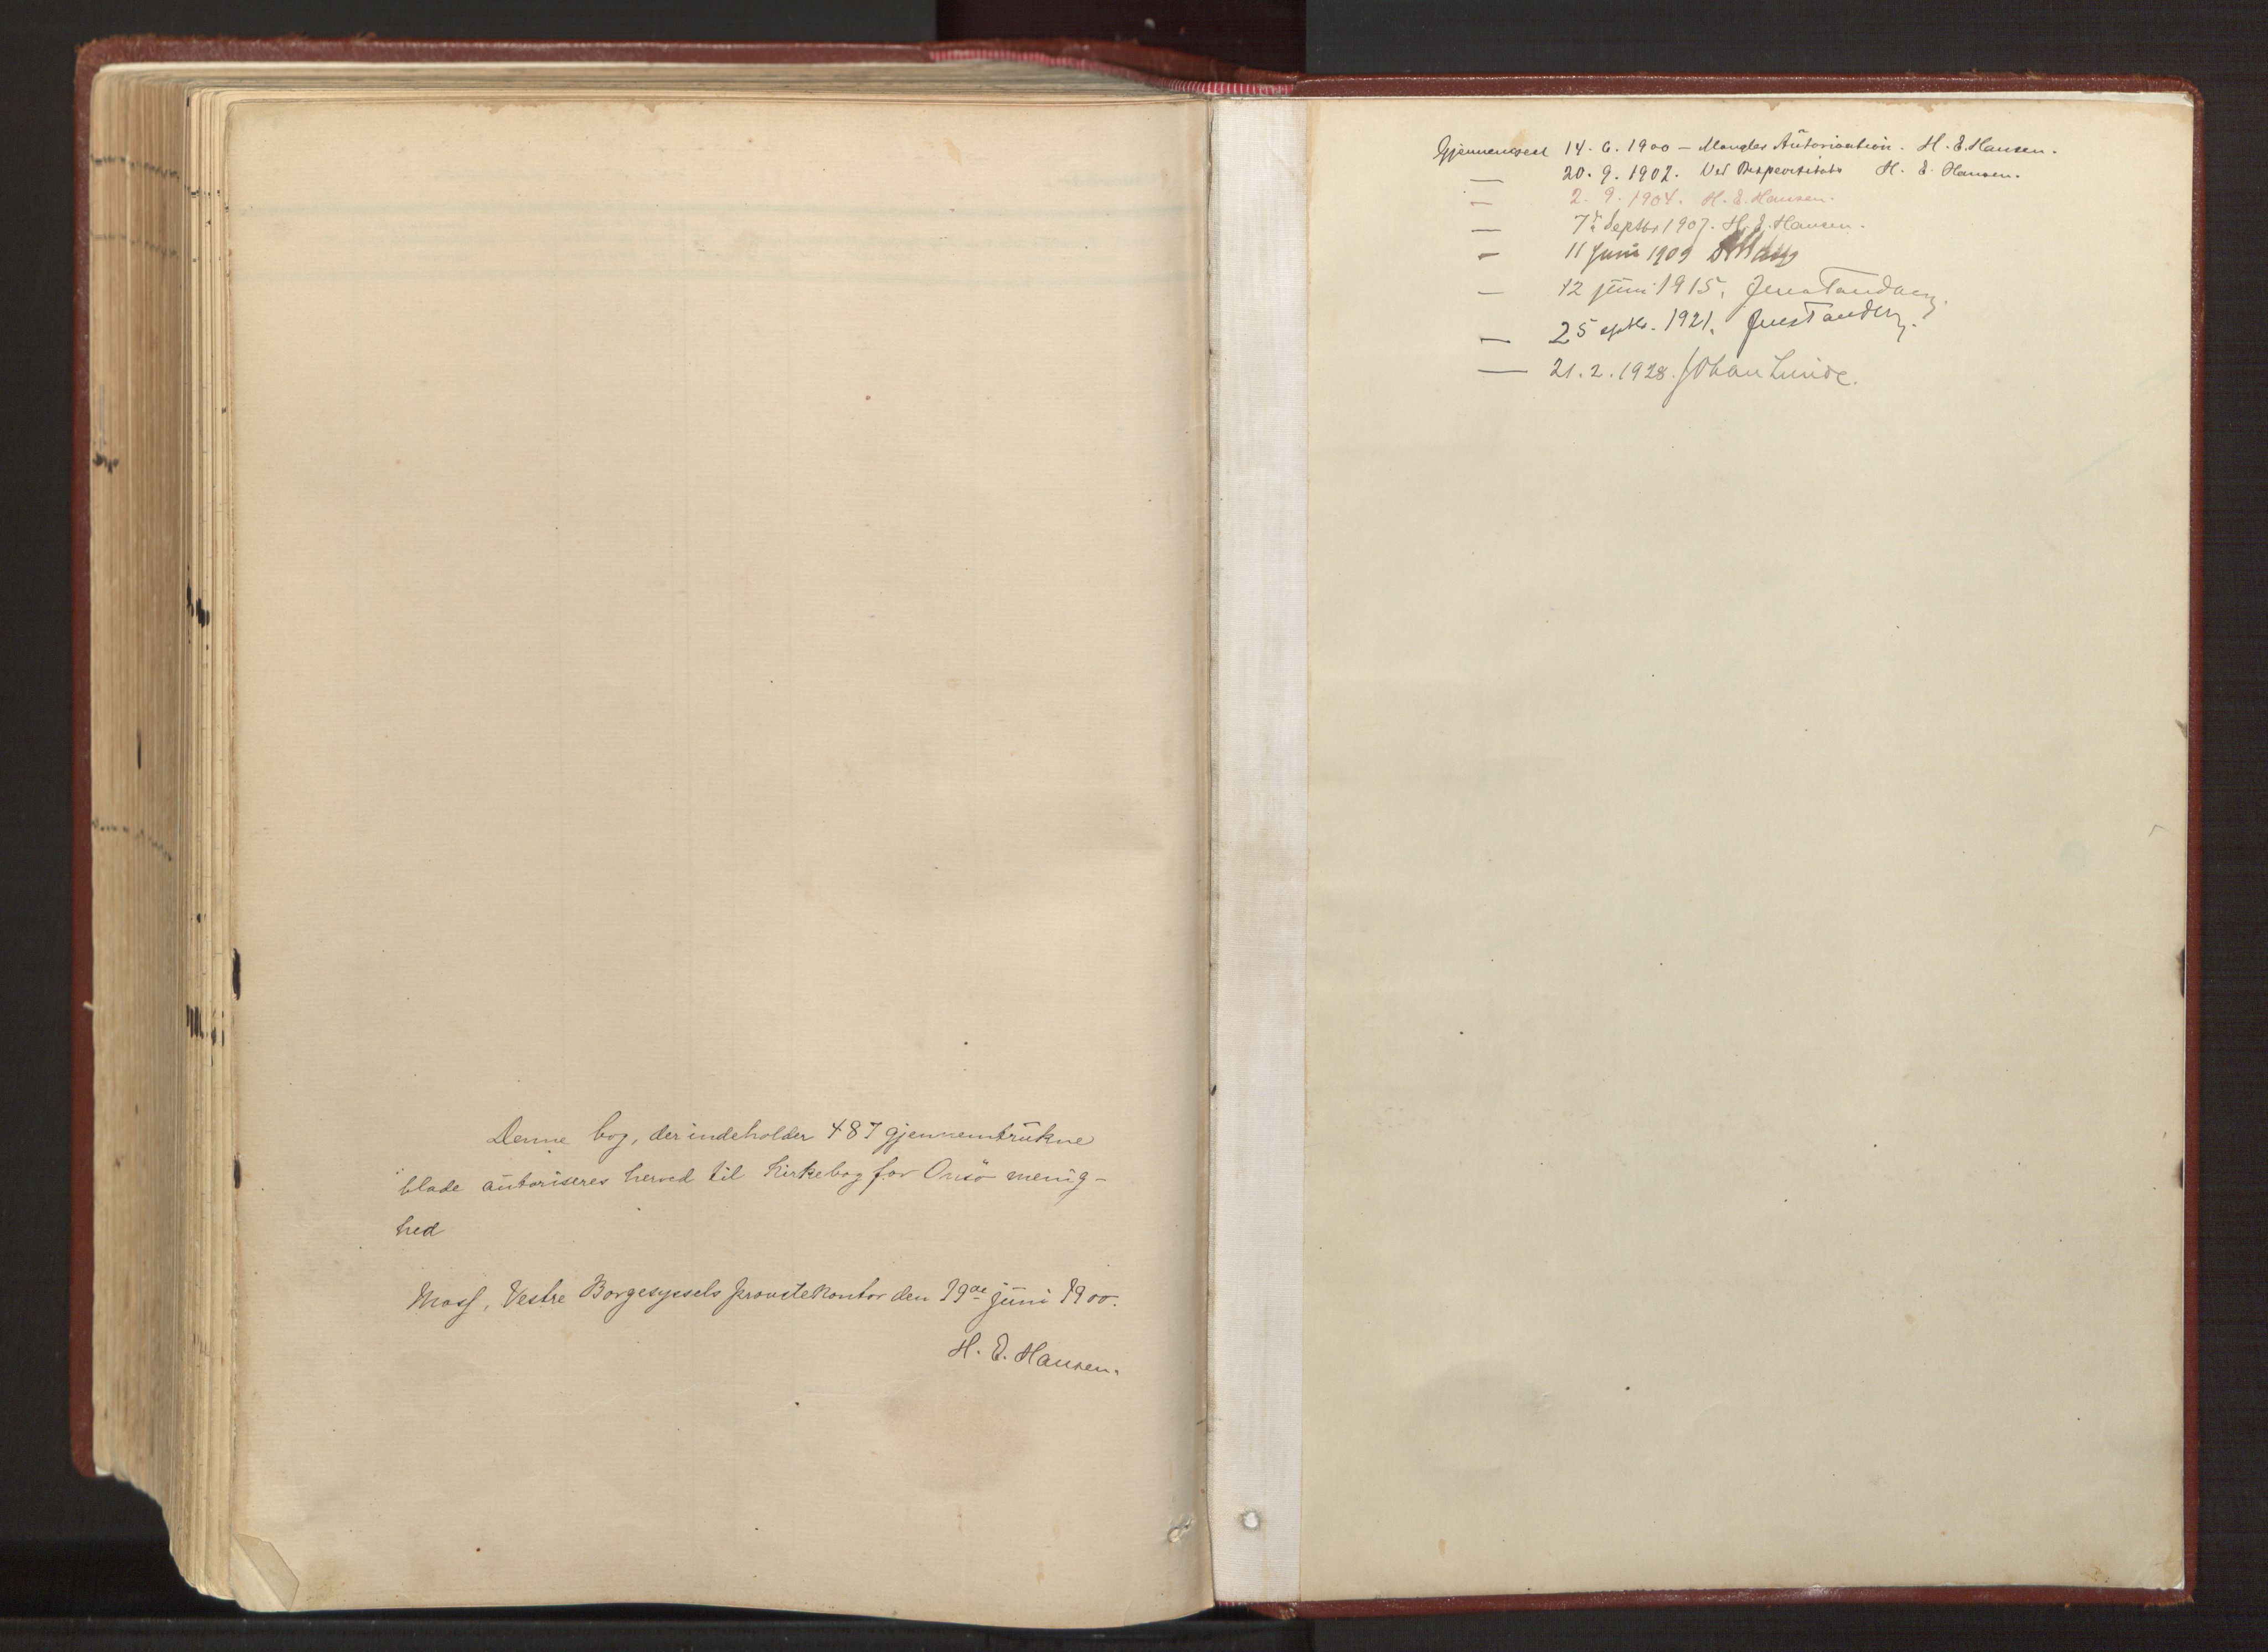 Denne bog, der indeholder 487 gjennemtrukne
blade autoriseres herved til Kirkebog for Onsö menig-
hed
Moss, Vestre Borgesyssels provstekontor den 19de juni 1900.
H. E. Hansen.
Gjennemseet 14. 6. 1900 – Mangler Autorisation. H. E. Hansen.
— 20. 9. 1902. Ved Bispevisitats H. E. Hansen.
— 2. 9. 1904. H. E. Hansen.
— 7de Septbr 1907. H. E. Hansen.
— 11 Juni 1909
— 12 juni 1915. Jens Tandberg.
— 25 septbr. 1921. Jens Tandberg.
— 21. 2. 1928. Johan Lunde.